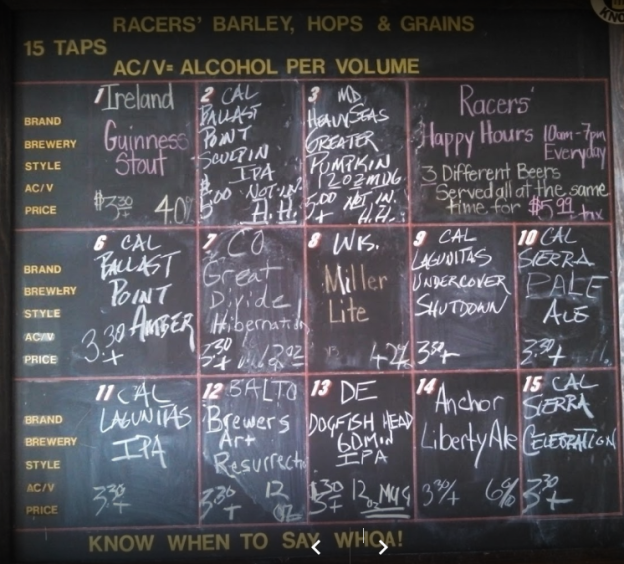 RACERS' BARLEY, HOPS & GRAINS
15 TAPS
AC/V= ALCOHOL PER VOLUME
BRAND
BREWERY
STYLE
AC/V
PRICE
1 Ireland
Guinness
Stout
$3.30
+
4.0%
2 CAL
BALLAST
POINT
SCULPIN
IPA
$5.00 NOT IN
H.H.
3 MD
HEAVYSEAS
GREATER
PUMPKIN
12OZ MUG
5.00 NOT IN.
+ H.H.
Racers'
Happy Hours 10am-7pm
Everyday
3 Different Beers
Served all at the same
time for $5.99 + tax
BRAND
BREWERY
STYLE
AC/V
PRICE
6 CAL
BALLAST
POINT
AMBER
3.30
+
7 CO
Great
Divide
Hibernation
3.30
+
12oz
8 WIS.
Miller
Lite
4.2%
9 CAL
LAGUNITAS
UNDERCOVER
SHUTDOWN
3.30
+
10 CAL
SIERRA
PALE
ALE
3.30
+
BRAND
BREWERY
STYLE
AC/V
PRICE
11 CAL
LAGUNITAS
IPA
3.30
+
12 BALTO
Brewers
Art
Resurrection
3.30
+
12
oz
13 DE
DOGFISH HEAD
60MIN
IPA
$3.30
+
12oz MUG
14 Anchor
Liberty Ale
3.30/+ 6%
15 CAL
SIERRA
CELEBRATION
3.30
+
KNOW WHEN TO SAY WHOA!